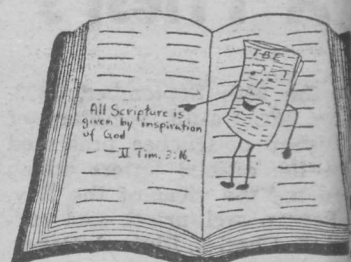 All Scripture is
given by inspiration
of God
—II Tim. 3:16